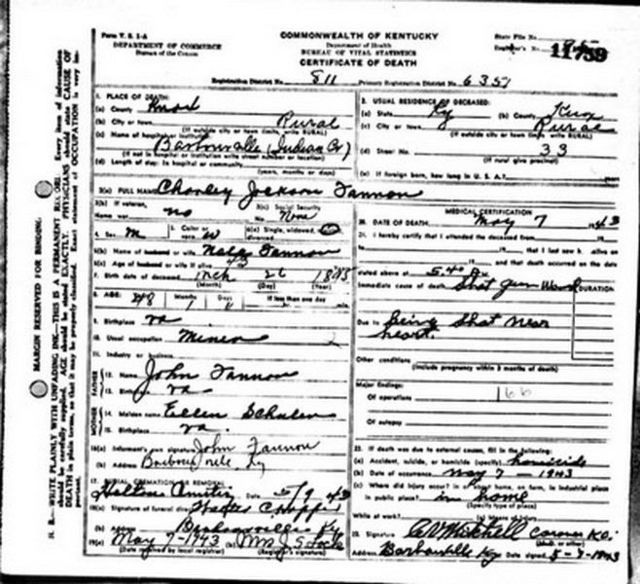 Form V. S. 1-A
DEPARTMENT OF COMMERCE
Bureau of the Census
COMMONWEALTH OF KENTUCKY
Department of Health
BUREAU OF VITAL STATISTICS
CERTIFICATE OF DEATH
State File No.
Registrar's No.
11759
Registration District No. 811 Primary Registration District No. 6351
MARGIN RESERVED FOR BINDING.
N. B.—WRITE PLAINLY WITH UNFADING INK—THIS IS A PERMANENT RECORD. Every item of information
should be carefully supplied. AGE should be stated EXACTLY. PHYSICIANS should state CAUSE OF
DEATH in plain terms, so that it may be properly classified. Exact statement of OCCUPATION is very important.
1. PLACE OF DEATH:
(a) County Knox
(b) City or town Rural
(If outside city or town limits, write RURAL)
(c) Name of hospital or institution
Barbourville (Indian Cr)
(If not in hospital or institution write street number or location)
(d) Length of stay: In hospital or community
(years, months or days)
2. USUAL RESIDENCE OF DECEASED:
(a) State Ky (b) County Knox
(c) City or town Rural
(If outside city or town limits, write RURAL)
(d) Street No. 33
(If rural give precinct)
(e) If foreign born, how long in U. S. A.? years
3(a) FULL NAME Charley Jackson Tannon
3(b) If veteran,
Name war no
3(c) Social Security
No. None
4. Sex M 5. Color or race W 6(a) Single, widowed, divorced
6(b) Name of husband or wife Tannon
6(c) Age of husband or wife if alive
7. Birth date of deceased Mch 26 1895
(Month) (Day) (Year)
8. AGE: 48 Months 1 Days 11 If less than one day
hr. min.
9. Birthplace Va
10. Usual occupation Miner
11. Industry or business
FATHER
12. Name John Tannon
13. Birthplace Va
MOTHER
14. Maiden name Ellen
15. Birthplace Va.
16(a) Informant's own signature John Tannon
(b) Address Barbourville Ky
17. BURIAL CREMATION OR REMOVAL
Date 5/9 43
18(a) Signature of funeral director
(b) Address Barbourville Ky
19(a) May 7-1943 (b) Mrs J. S.
(Date received by local registrar) (Registrar's signature)
MEDICAL CERTIFICATION
20. DATE OF DEATH May 7 1943
21. I hereby certify that I attended the deceased from
that I last saw h alive on
and that death occurred on the date
stated above at 5.40
Immediate cause of death Shot Gun Wound DURATION
Due to Being Shot near
heart.
Other conditions
(Include pregnancy within 3 months of death)
Major findings:
Of operations 166
Of autopsy
22. If death was due to external causes, fill in the following:
(a) Accident, suicide, or homicide (specify) homicide
(b) Date of occurrence May 7 1943
(c) Where did injury occur? in or about home, on farm, in industrial place
in public place? in home
(Specify type of place)
While at work?
(e) Means of injury
23. Signature Mitchell Coroner K.C.
(M.D. or other)
Address Barbourville Ky Date signed 5-7-1943